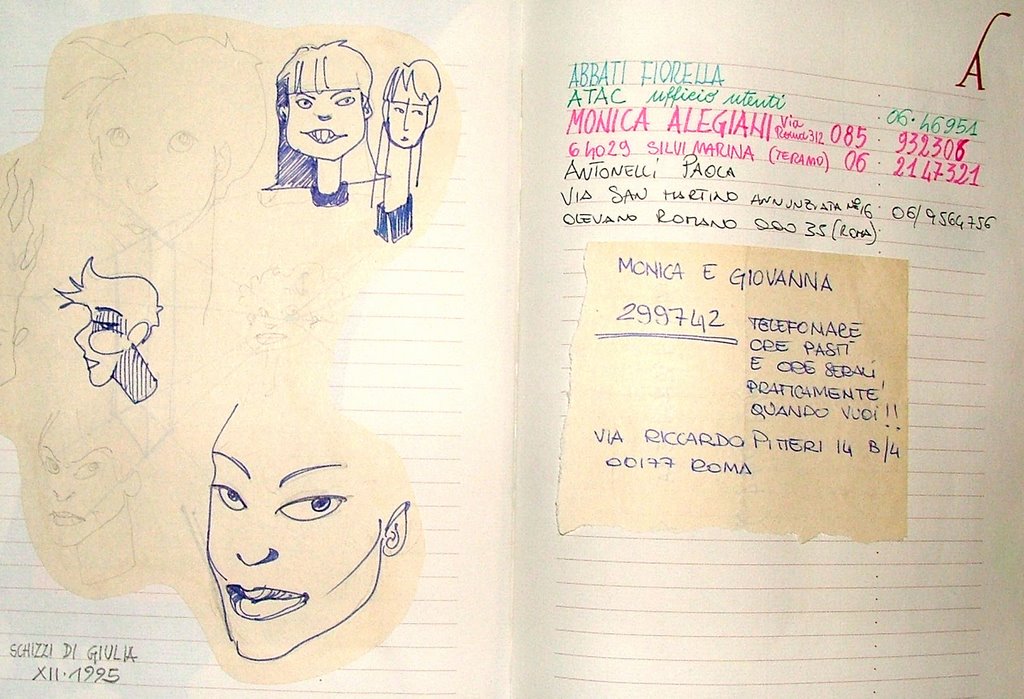 SCHIZZI DI GIULIA
XII·1995
A
ABBATI FIORELLA
ATAC ufficio utenti 06·46951
MONICA ALEGIANI Via Roma 312 085·932308
64029 SILVI MARINA (TERAMO) 06·2147321
ANTONELLI PAOLA
VIA SAN MARTINO ANNUNZIATA Nº16· 06/9564756
OLEVANO ROMANO 00035 (ROMA)·
MONICA E GIOVANNA
299742
TELEFONARE
ORE PASTI
E ORE SERALI
PRATICAMENTE
QUANDO VUOI!!
VIA RICCARDO PITTERI 14 B/4
00177 ROMA